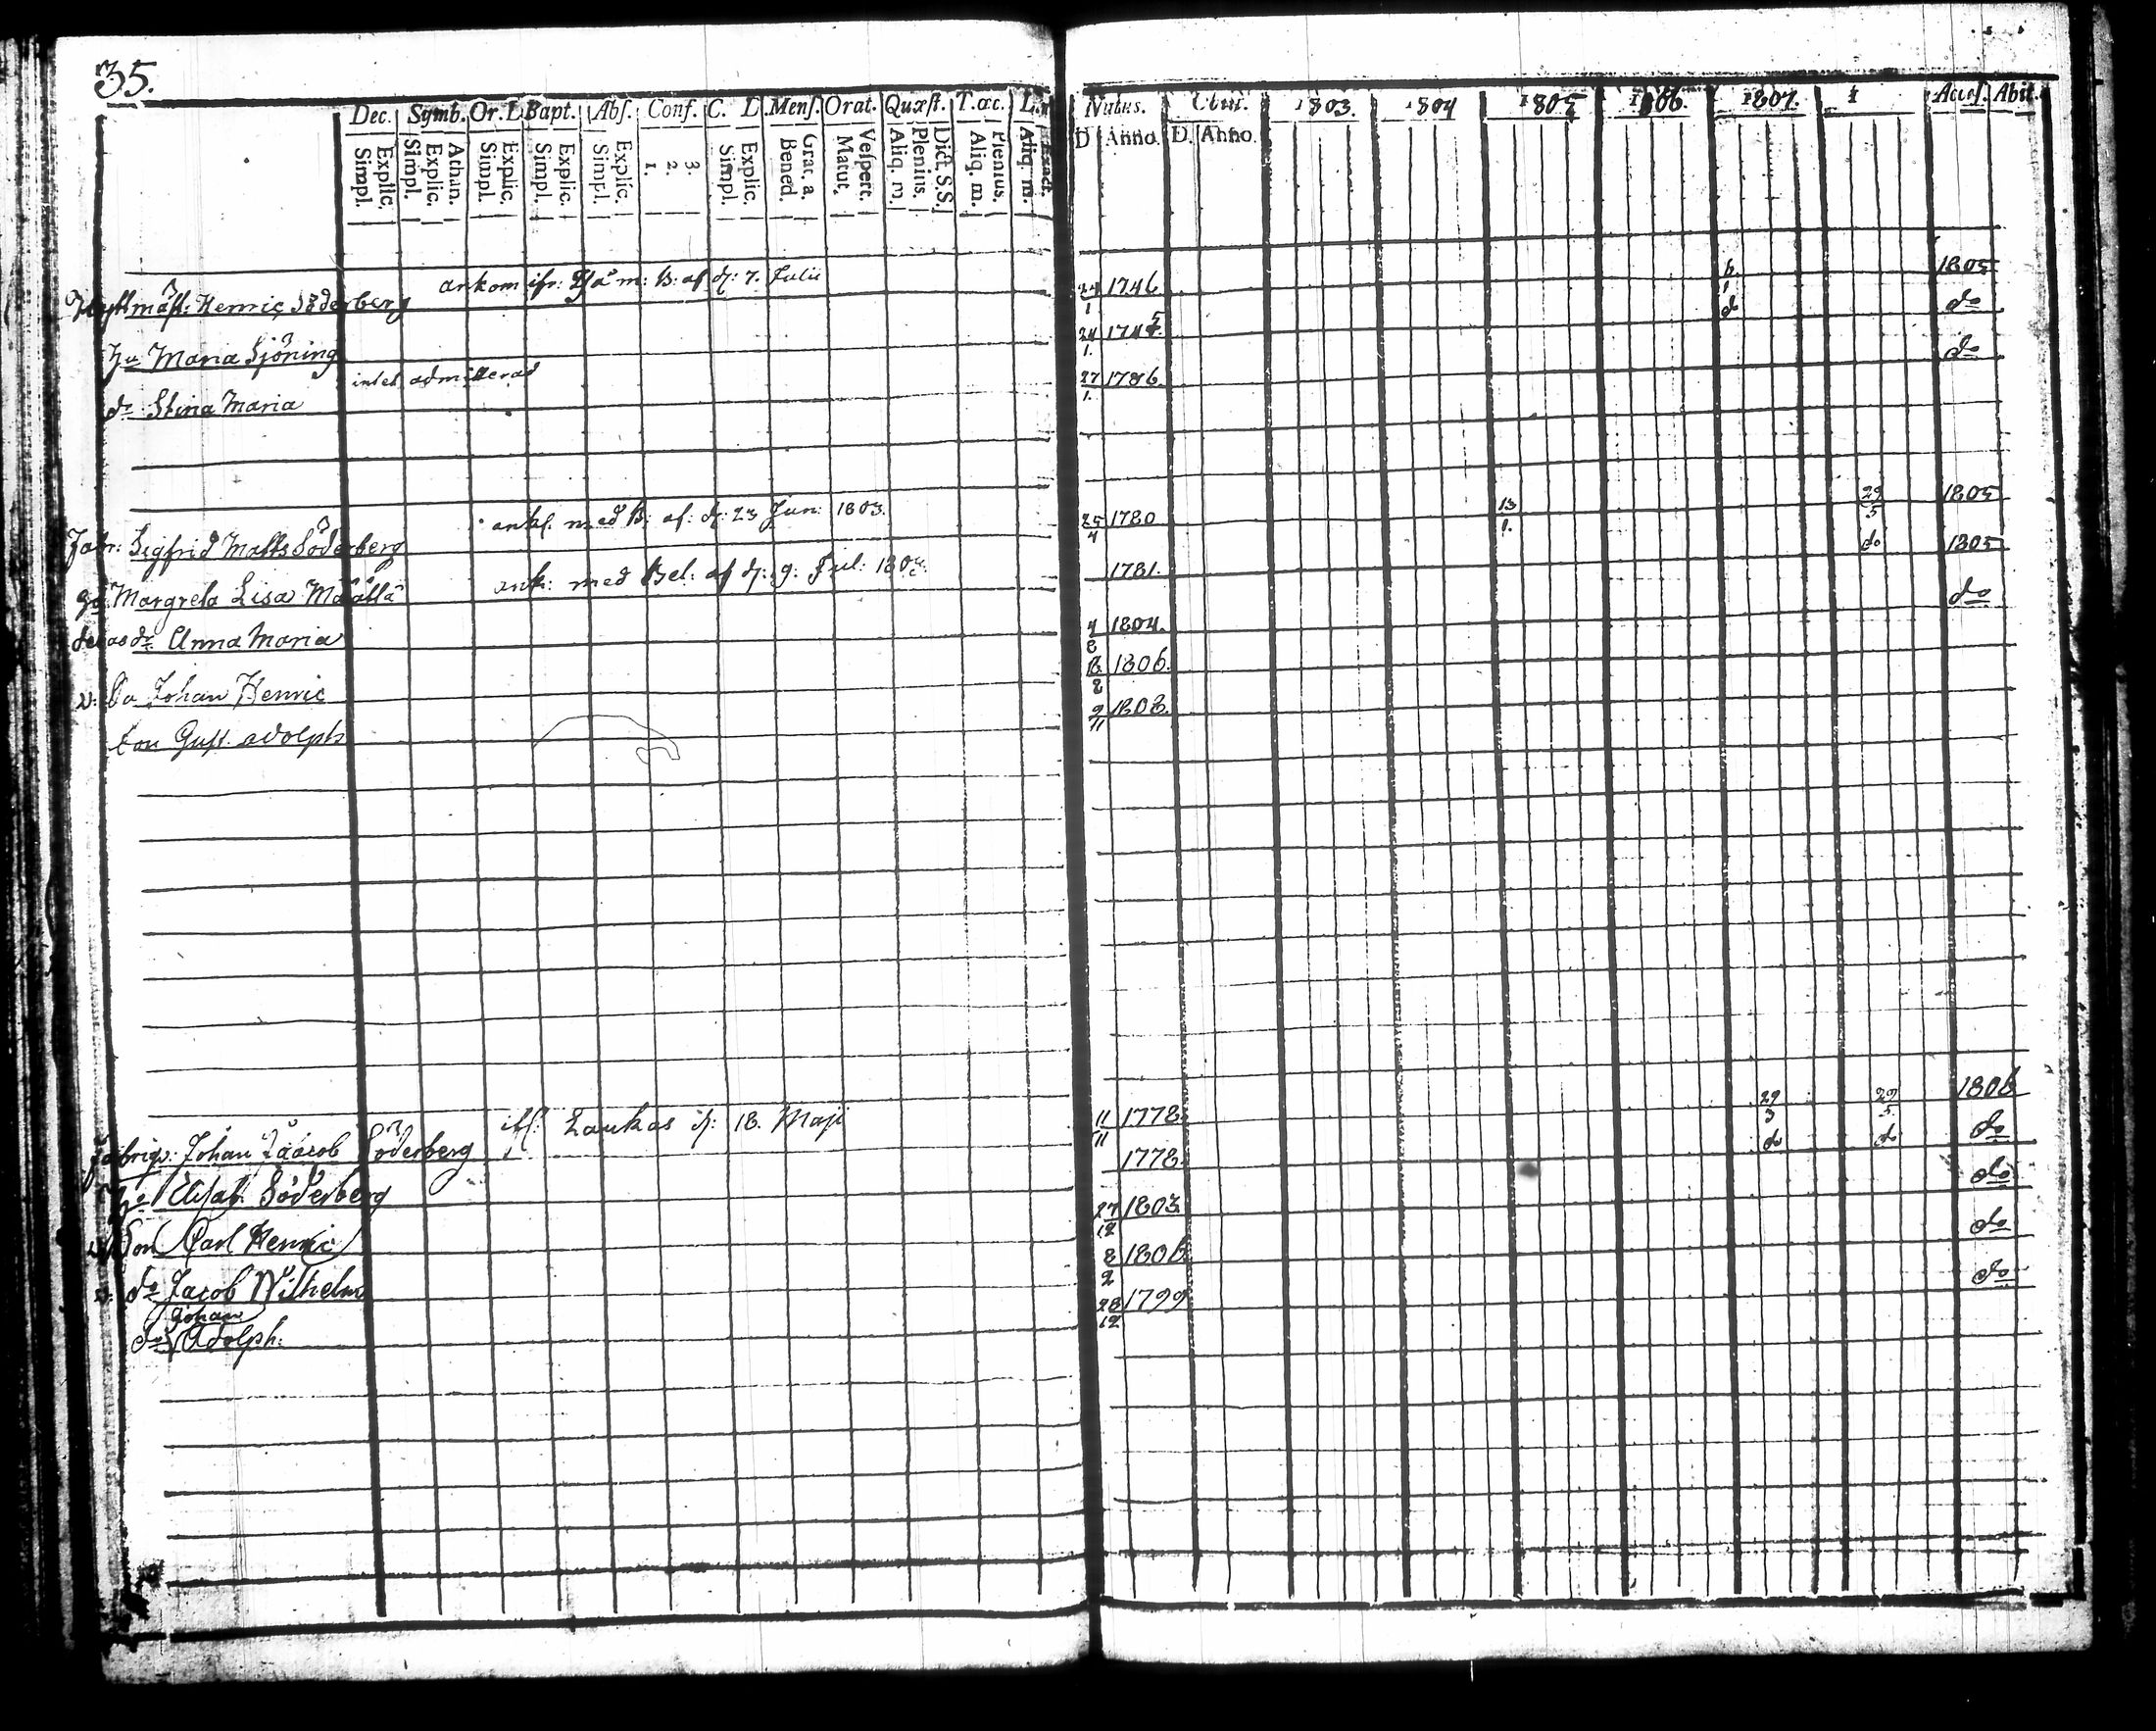 35.
Dec. Symb. Or. L Bapt. Abſ. Conf. C. L Menſ. Orat. Quæſt. T. œc. L.
Explic. Simpl. Athan. Explic. Simpl. Explic. Simpl. Explic. Simpl. Explic. Simpl. 3. 2. 1. Explic. Simpl. Grat. a. Bened. Veſpert. Matut. Dict. S.S. Plenius. Aliq. m. Plenius. Aliq. m. Exact. Aliq. m.
Natus. 1803. 1804 1805 1806. 1807. 1 Acceſ. Abit.
D Anno. D. Anno.
ankom ifr: m: B: af d: 7. Julii
Henric Söderberg 24/1 1746. 6/1 1805
Hu Maria Sjöning 24/1. 1745. do do
intet admitterad
dr Stina Maria 27/1. 1786. do
ank. med B: af: d: 23 Jun: 1803.
Fabr: Sigfrid Matts Söderberg 25/4 1780 13/1. 29/5 1805
ank: med Bel: af d: 9: Jul: 180
Margreta Lisa Määttä 1781. do 1805
deras dr. Anna Maria 4/8 1804. do
v: So Johan Henric 18/2 1806.
Son Guſt. adolph 9/11 1808.
Laukas d: 18. Maji
Fabriqv: Johan Jaacob Söderberg 11/11 1778. 29/3 29/5 1806
Hu Eliſab. Söderberg 1778. do do do
v. Son Carl Henric 27/12 1803 do
v: do Jacob Wilhelm 8/2 1806. do
Johan
do Adolph: 28/12 1799 do